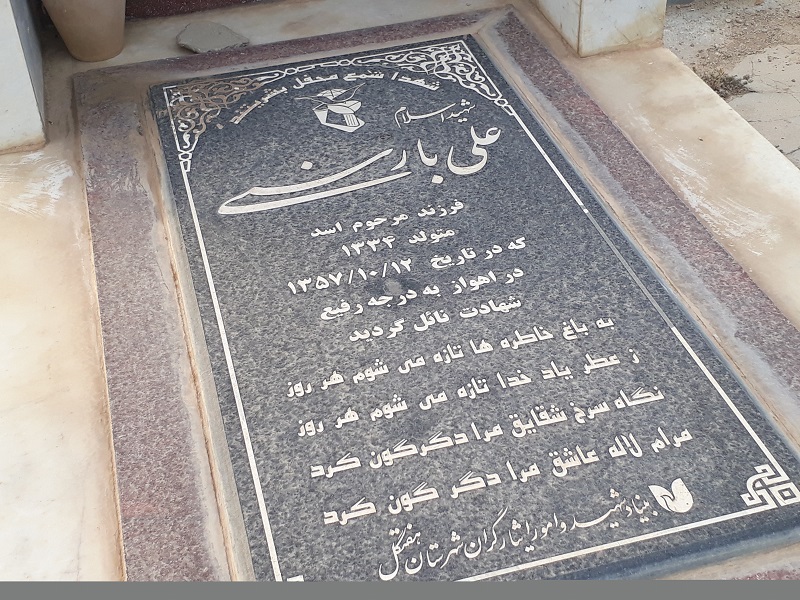 شهدا شمع محفل بشریتند
شهید اسلام
علی بارسی
فرزند مرحوم اسد
متولد ۱۳۳۴
که در تاریخ ۱۳۵۷/۱۰/۱۲
در اهواز به درجه رفیع
شهادت نائل گردید
به باغ خاطره ها تازه می شوم هر روز
ز عطر یاد خدا تازه می شوم هر روز
نگاه سرخ شقایق مرا دگرگون کرد
مرام لاله عاشق مرا دگر گون کرد
بنیاد شهید و امور ایثارگران شهرستان هفتگل